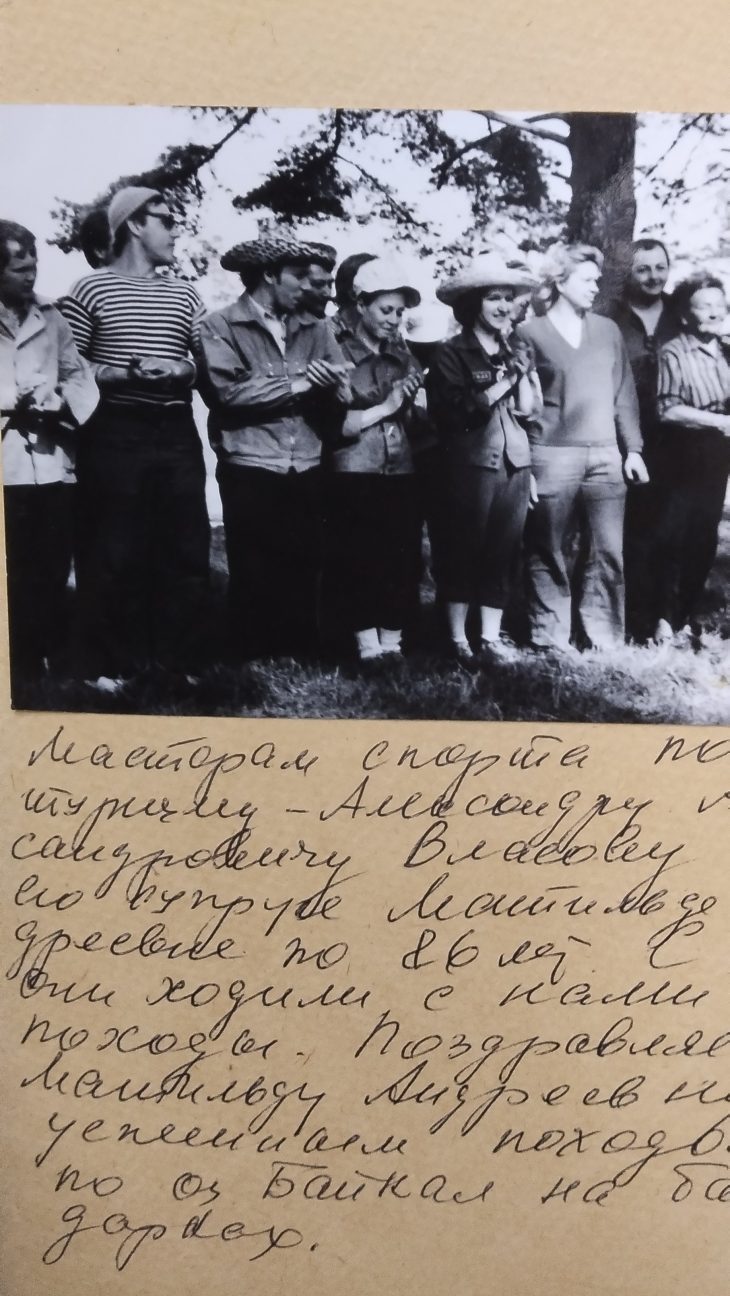 Мастерам спорта по
туризму – Александру
сандровичу Власову
его супруге Матильде
дреевне по 86 лет С
они ходили с нами
походы. Поздравляе
Матильду Андреевну
успешным походом
по оз Байкал на ба
дарках.